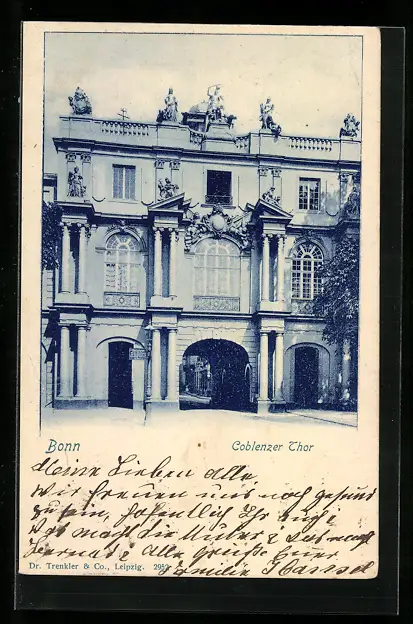 Bonn
Coblenzer Thor
Meine Lieben Alle
Wir freuen uns noch gesund
zu sein, hofentlich Ihr auch!
Was macht die Mutter & das
Alle Grüße Euer
Dr. Trenkler & Co., Leipzig. 2952
Familie